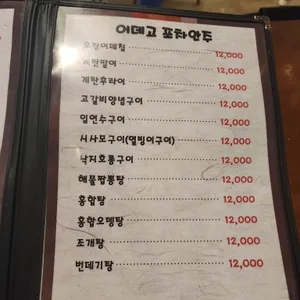 이데고 포차안주
12,000
계란말이 12,000
계란후라이 12,000
고갈비양념구이 12,000
임연수구이 12,000
시사모구이(열빙어구이) 12,000
낙지호롱구이 12,000
해물짬뽕탕 12,000
홍합탕 12,000
홍합오뎅탕 12,000
조개탕 12,000
번데기탕 12,000